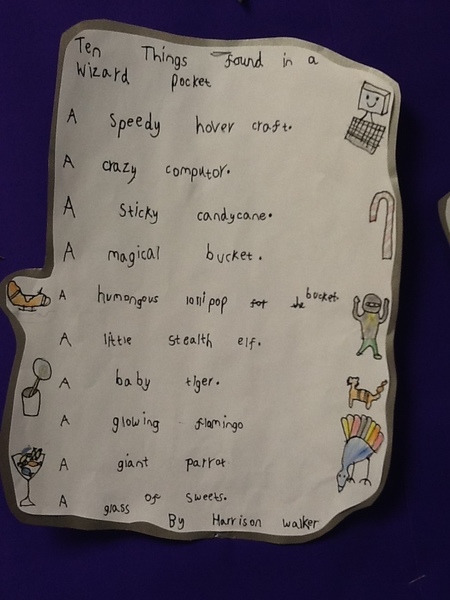 Ten Things found in a
Wizard pocket
A speedy hover craft.
A crazy computor.
A sticky candycane.
A magical bucket.
A humongous lollipop for the bucket.
A little stealth elf.
A baby tiger.
A glowing flamingo
A giant parrot
A glass of sweets.
By Harrison walker